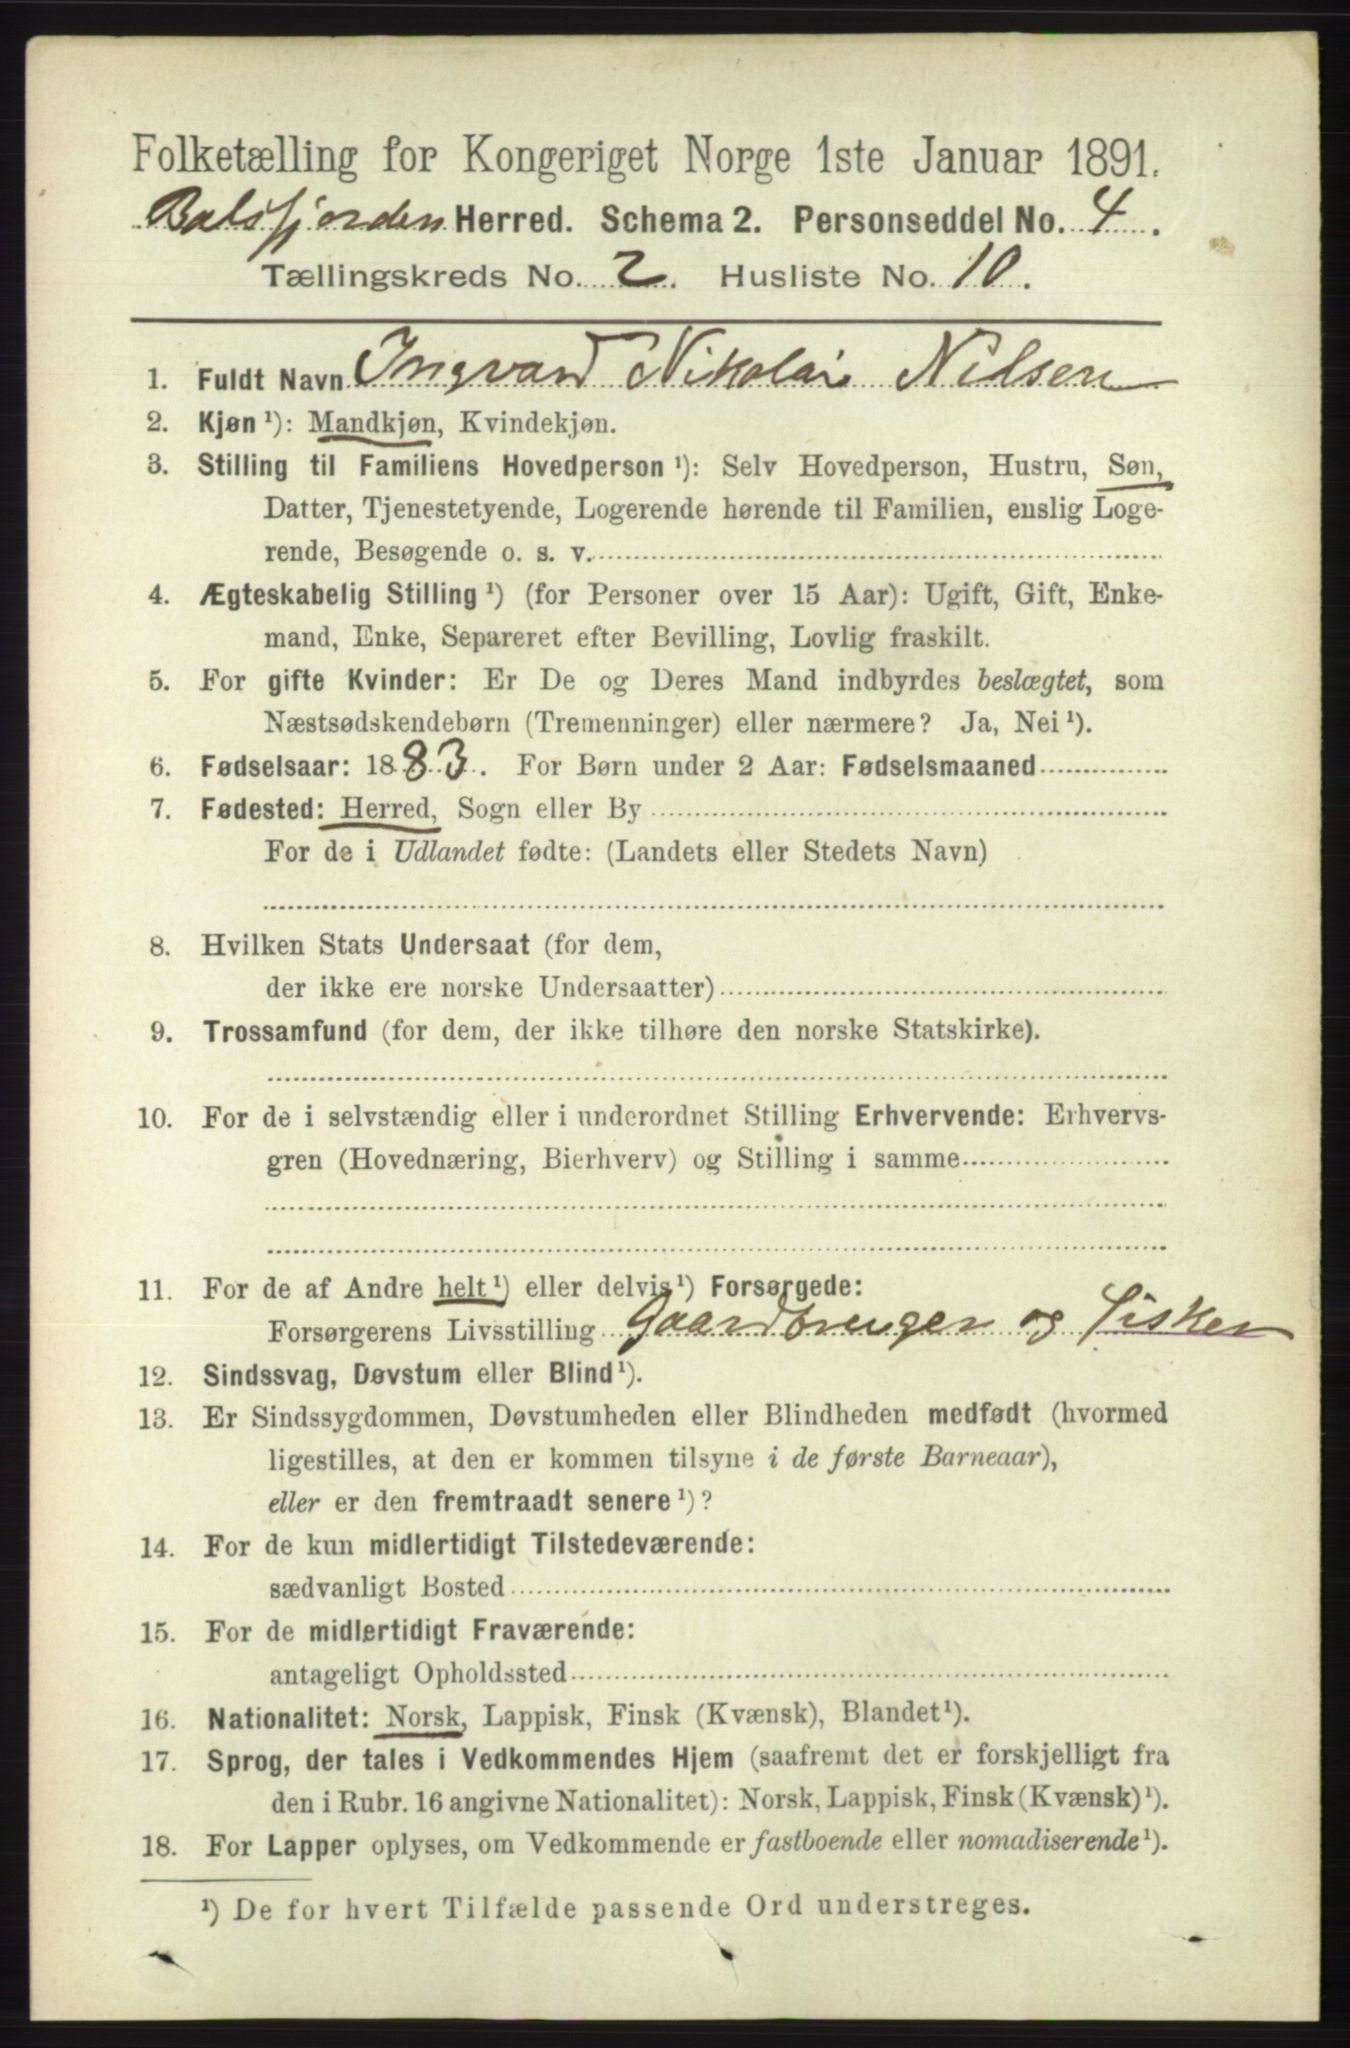 Folketælling for Kongeriget Norge 1ste Januar 1891.
Balsfjorden Herred. Schema 2. Personseddel No. 4.
Tællingskreds No. 2. Husliste No. 10.
1. Fuldt Navn Ingvard Nikolai Nilsen
2. Kjøn ¹): Mandkjøn, Kvindekjøn.
3. Stilling til Familiens Hovedperson ¹): Selv Hovedperson, Hustru, Søn,
Datter, Tjenestetyende, Logerende hørende til Familien, enslig Loge-
rende, Besøgende o. s. v.
4. Ægteskabelig Stilling ¹) (for Personer over 15 Aar): Ugift, Gift, Enke-
mand, Enke, Separeret efter Bevilling, Lovlig fraskilt.
5. For gifte Kvinder: Er De og Deres Mand indbyrdes beslægtet, som
Næstsødskendebørn (Tremenninger) eller nærmere? Ja, Nei ¹).
6. Fødselsaar: 1883. For Børn under 2 Aar: Fødselsmaaned
7. Fødested: Herred, Sogn eller By
For de i Udlandet fødte: (Landets eller Stedets Navn)
8. Hvilken Stats Undersaat (for dem,
der ikke ere norske Undersaatter)
9. Trossamfund (for dem, der ikke tilhøre den norske Statskirke).
10. For de i selvstændig eller i underordnet Stilling Erhvervende: Erhvervs-
gren (Hovednæring, Bierhverv) og Stilling i samme
11. For de af Andre helt ¹) eller delvis ¹) Forsørgede:
Forsørgerens Livsstilling Gaardbruger og Fisker
12. Sindssvag, Døvstum eller Blind ¹).
13. Er Sindssygdommen, Døvstumheden eller Blindheden medfødt (hvormed
ligestilles, at den er kommen tilsyne i de første Barneaar),
eller er den fremtraadt senere ¹)?
14. For de kun midlertidigt Tilstedeværende:
sædvanligt Bosted
15. For de midlertidigt Fraværende:
antageligt Opholdssted
16. Nationalitet: Norsk, Lappisk, Finsk (Kvænsk), Blandet ¹).
17. Sprog, der tales i Vedkommendes Hjem (saafremt det er forskjelligt fra
den i Rubr. 16 angivne Nationalitet): Norsk, Lappisk, Finsk (Kvænsk) ¹).
18. For Lapper oplyses, om Vedkommende er fastboende eller nomadiserende ¹).
¹) De for hvert Tilfælde passende Ord understreges.